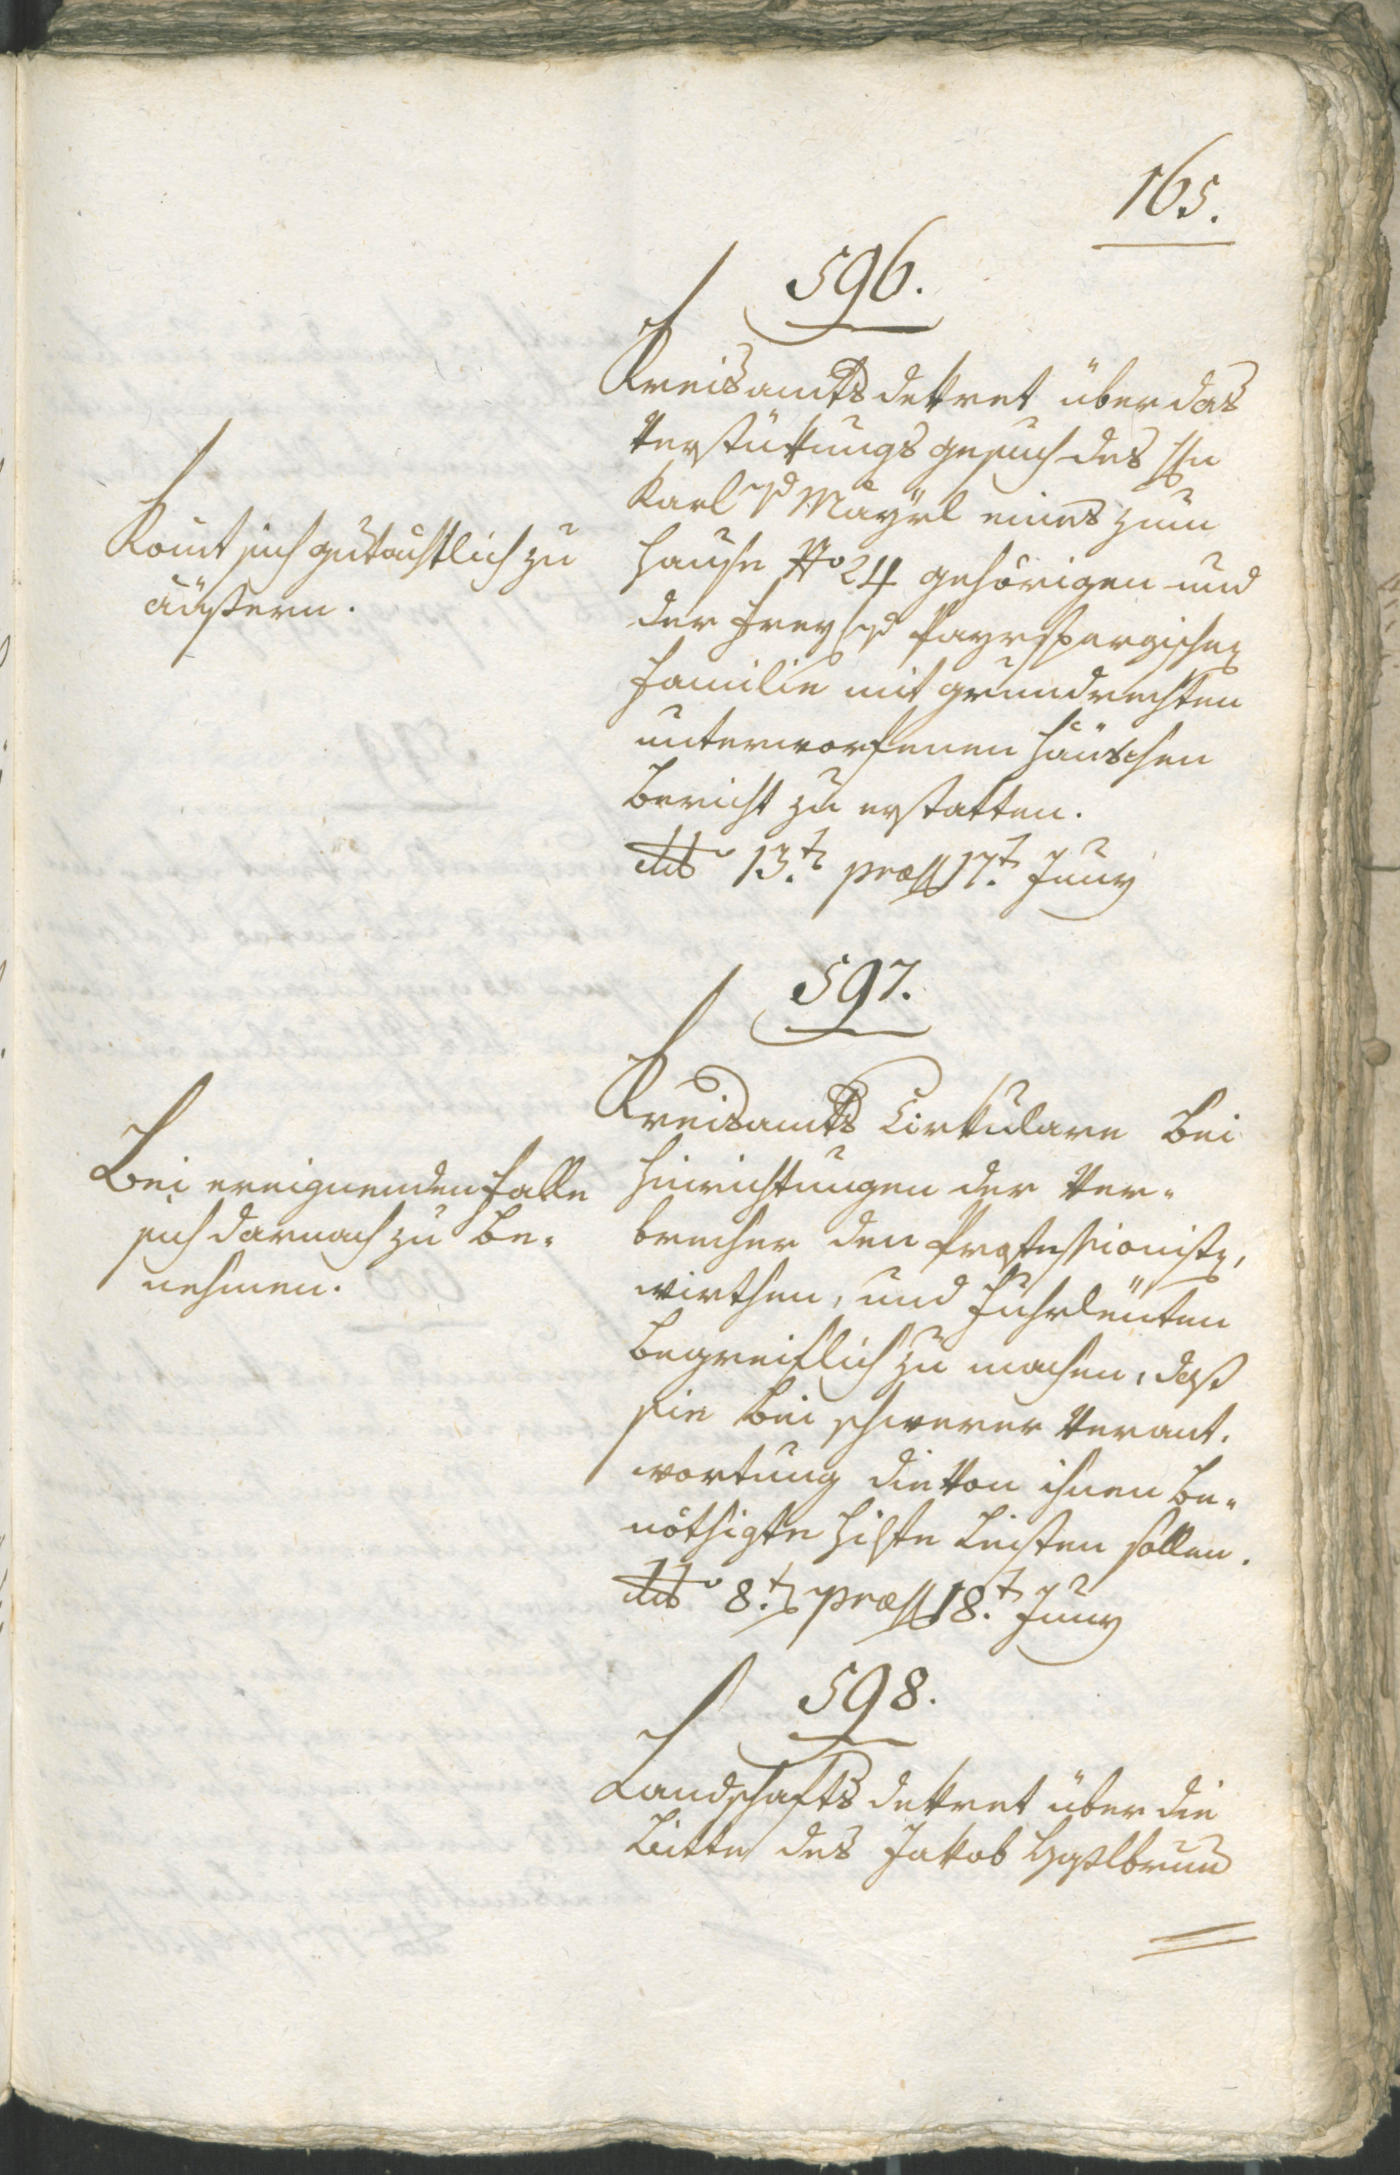 165.
596.
Kreisamtsdekret über das
Verstükungsgesuch des Hn
Karl v Mayrl eines zum
Hause No 24 gehörigen und
der Frey v Payrspergischen
Familie mit Grundrechten
unterworfenen Häuschen
Bericht zu erstatten.
ddo 13.t præs 17.t Juny
Komt sich gutächtlich zu
äüßern.
597.
Kreisamts Cirkulare bei
Hinrichtungen der Ver-
brecher den Professionisten,
wirthen, und Fuhrleüten
begreiflich zu machen, daß
sie bei schwerer Verant-
wortung die von ihnen be-
nöthigte Hilfe leisten sollen.
ddo 8.t præs 18.t Juny
Bei ereignenden Falle
sich darnach zu be-
nehmen.
598.
Landschaftsdekret über die
Bitte des Jakob